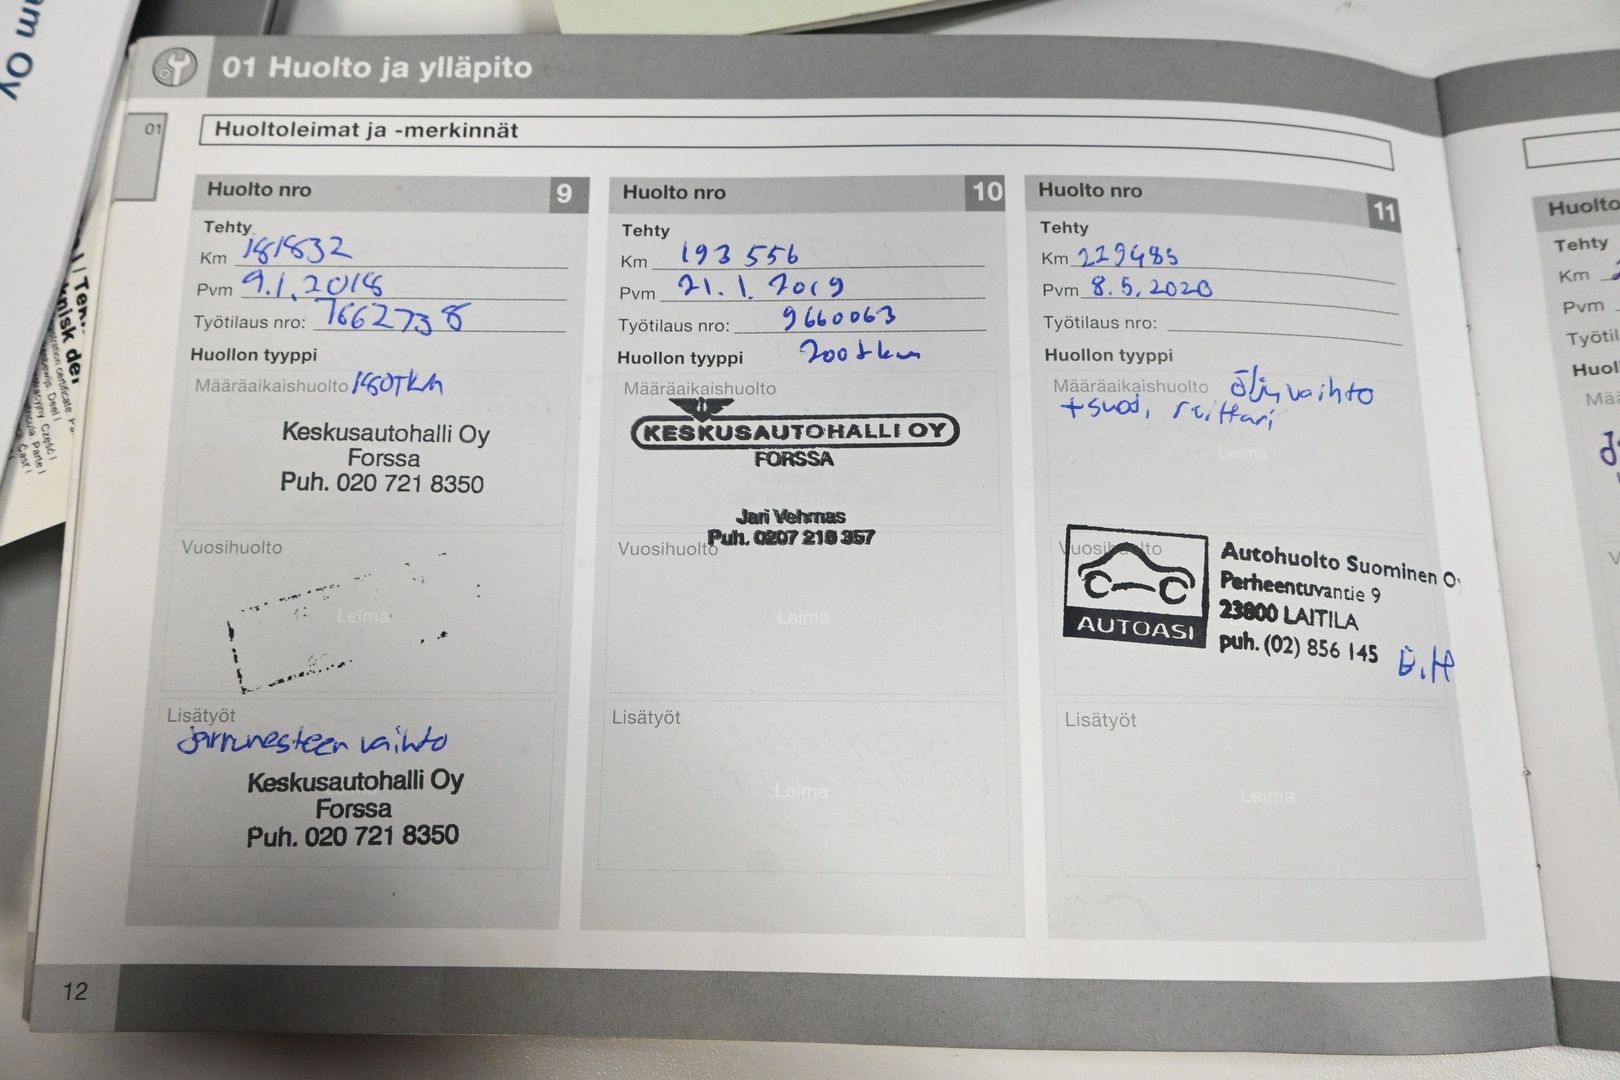 am Oy
01 Huolto ja ylläpito
01
Huoltoleimat ja -merkinnät
Huolto nro 9
Tehty
Km 181832
Pvm 9.1.2018
Työtilaus nro: 7662738
Huollon tyyppi
Määräaikaishuolto 180TKM
Keskusautohalli Oy
Forssa
Puh. 020 721 8350
Vuosihuolto
Leima
Lisätyöt
jarrunesteen vaihto
Keskusautohalli Oy
Forssa
Puh. 020 721 8350
Huolto nro 10
Tehty
Km 193 556
Pvm 21.1.2019
Työtilaus nro: 9660063
Huollon tyyppi 200tkm
Määräaikaishuolto
KESKUSAUTOHALLI OY
FORSSA
Jari Vehmas
Puh. 0207 218 357
Vuosihuolto
Leima
Lisätyöt
Leima
Huolto nro 11
Tehty
Km 229485
Pvm 8.5.2020
Työtilaus nro:
Huollon tyyppi
Määräaikaishuolto öljynvaihto
+suod,
Leima
Vuosihuolto
AUTOASI
Autohuolto Suominen Oy
Perheentuvantie 9
23800 LAITILA
puh. (02) 856 145
Lisätyöt
Leima
12
Huolto
Tehty
Km
Pvm